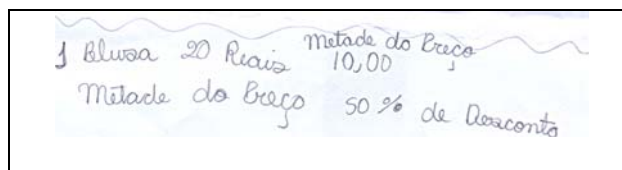 1 Blusa 20 Reais Metade do Preço 10,00
Metade do Preço 50 % de Desconto